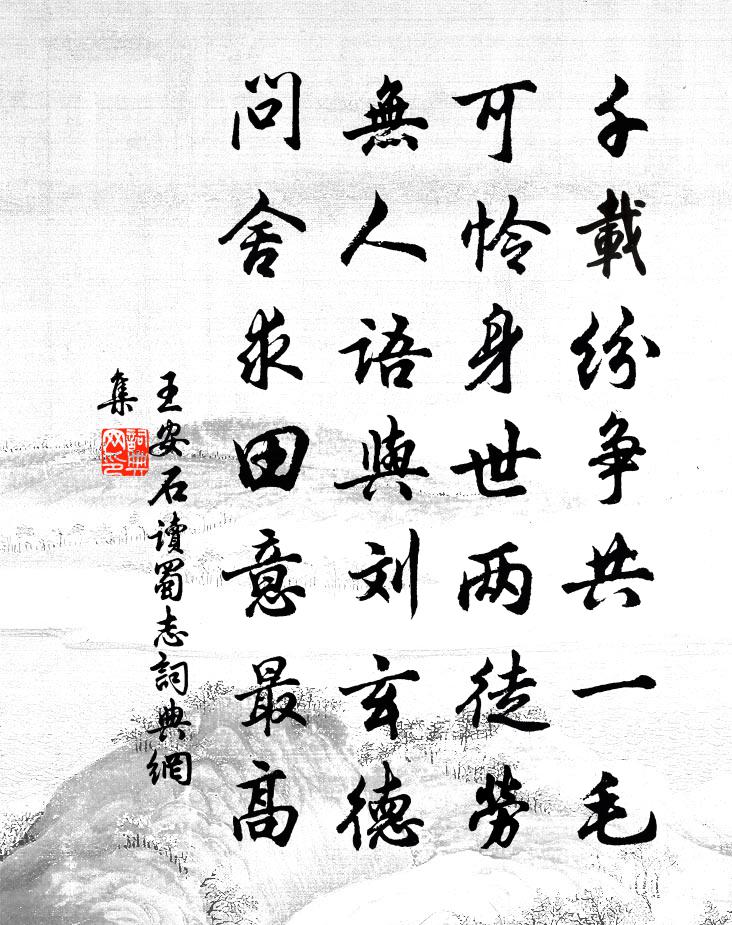 千載紛争共一毛
可怜身世两徒勞
無人語與刘玄德
問舍求田意最高
王安石讀蜀志詞典網
集
詞典网印